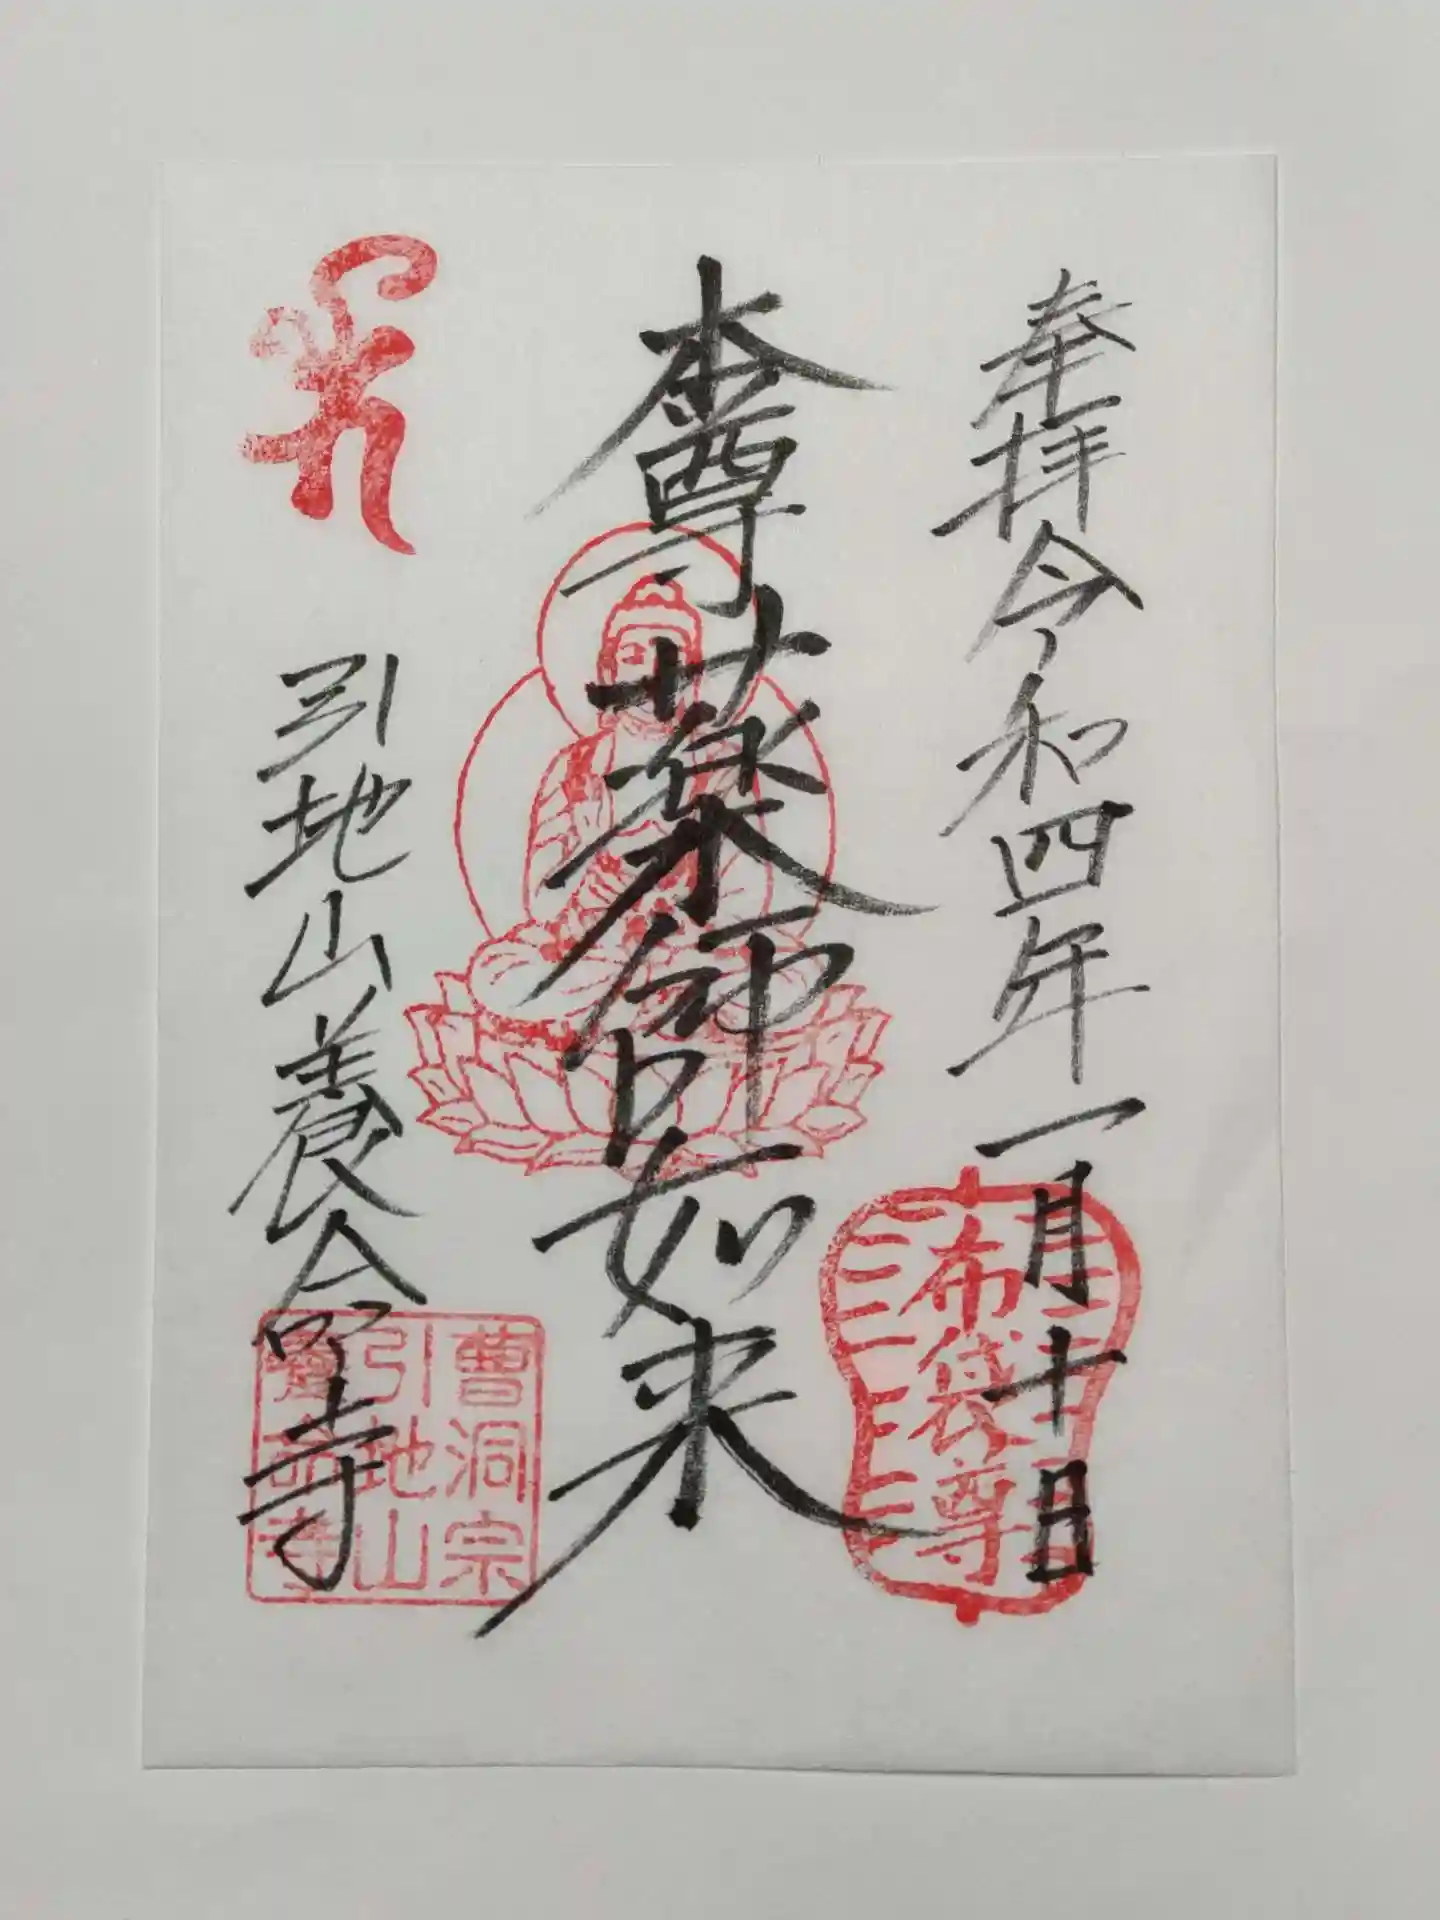 奉拝令和四年一月十日
布袋尊
本尊薬師如来
引地山養命寺
曹洞宗
引地山
養命寺